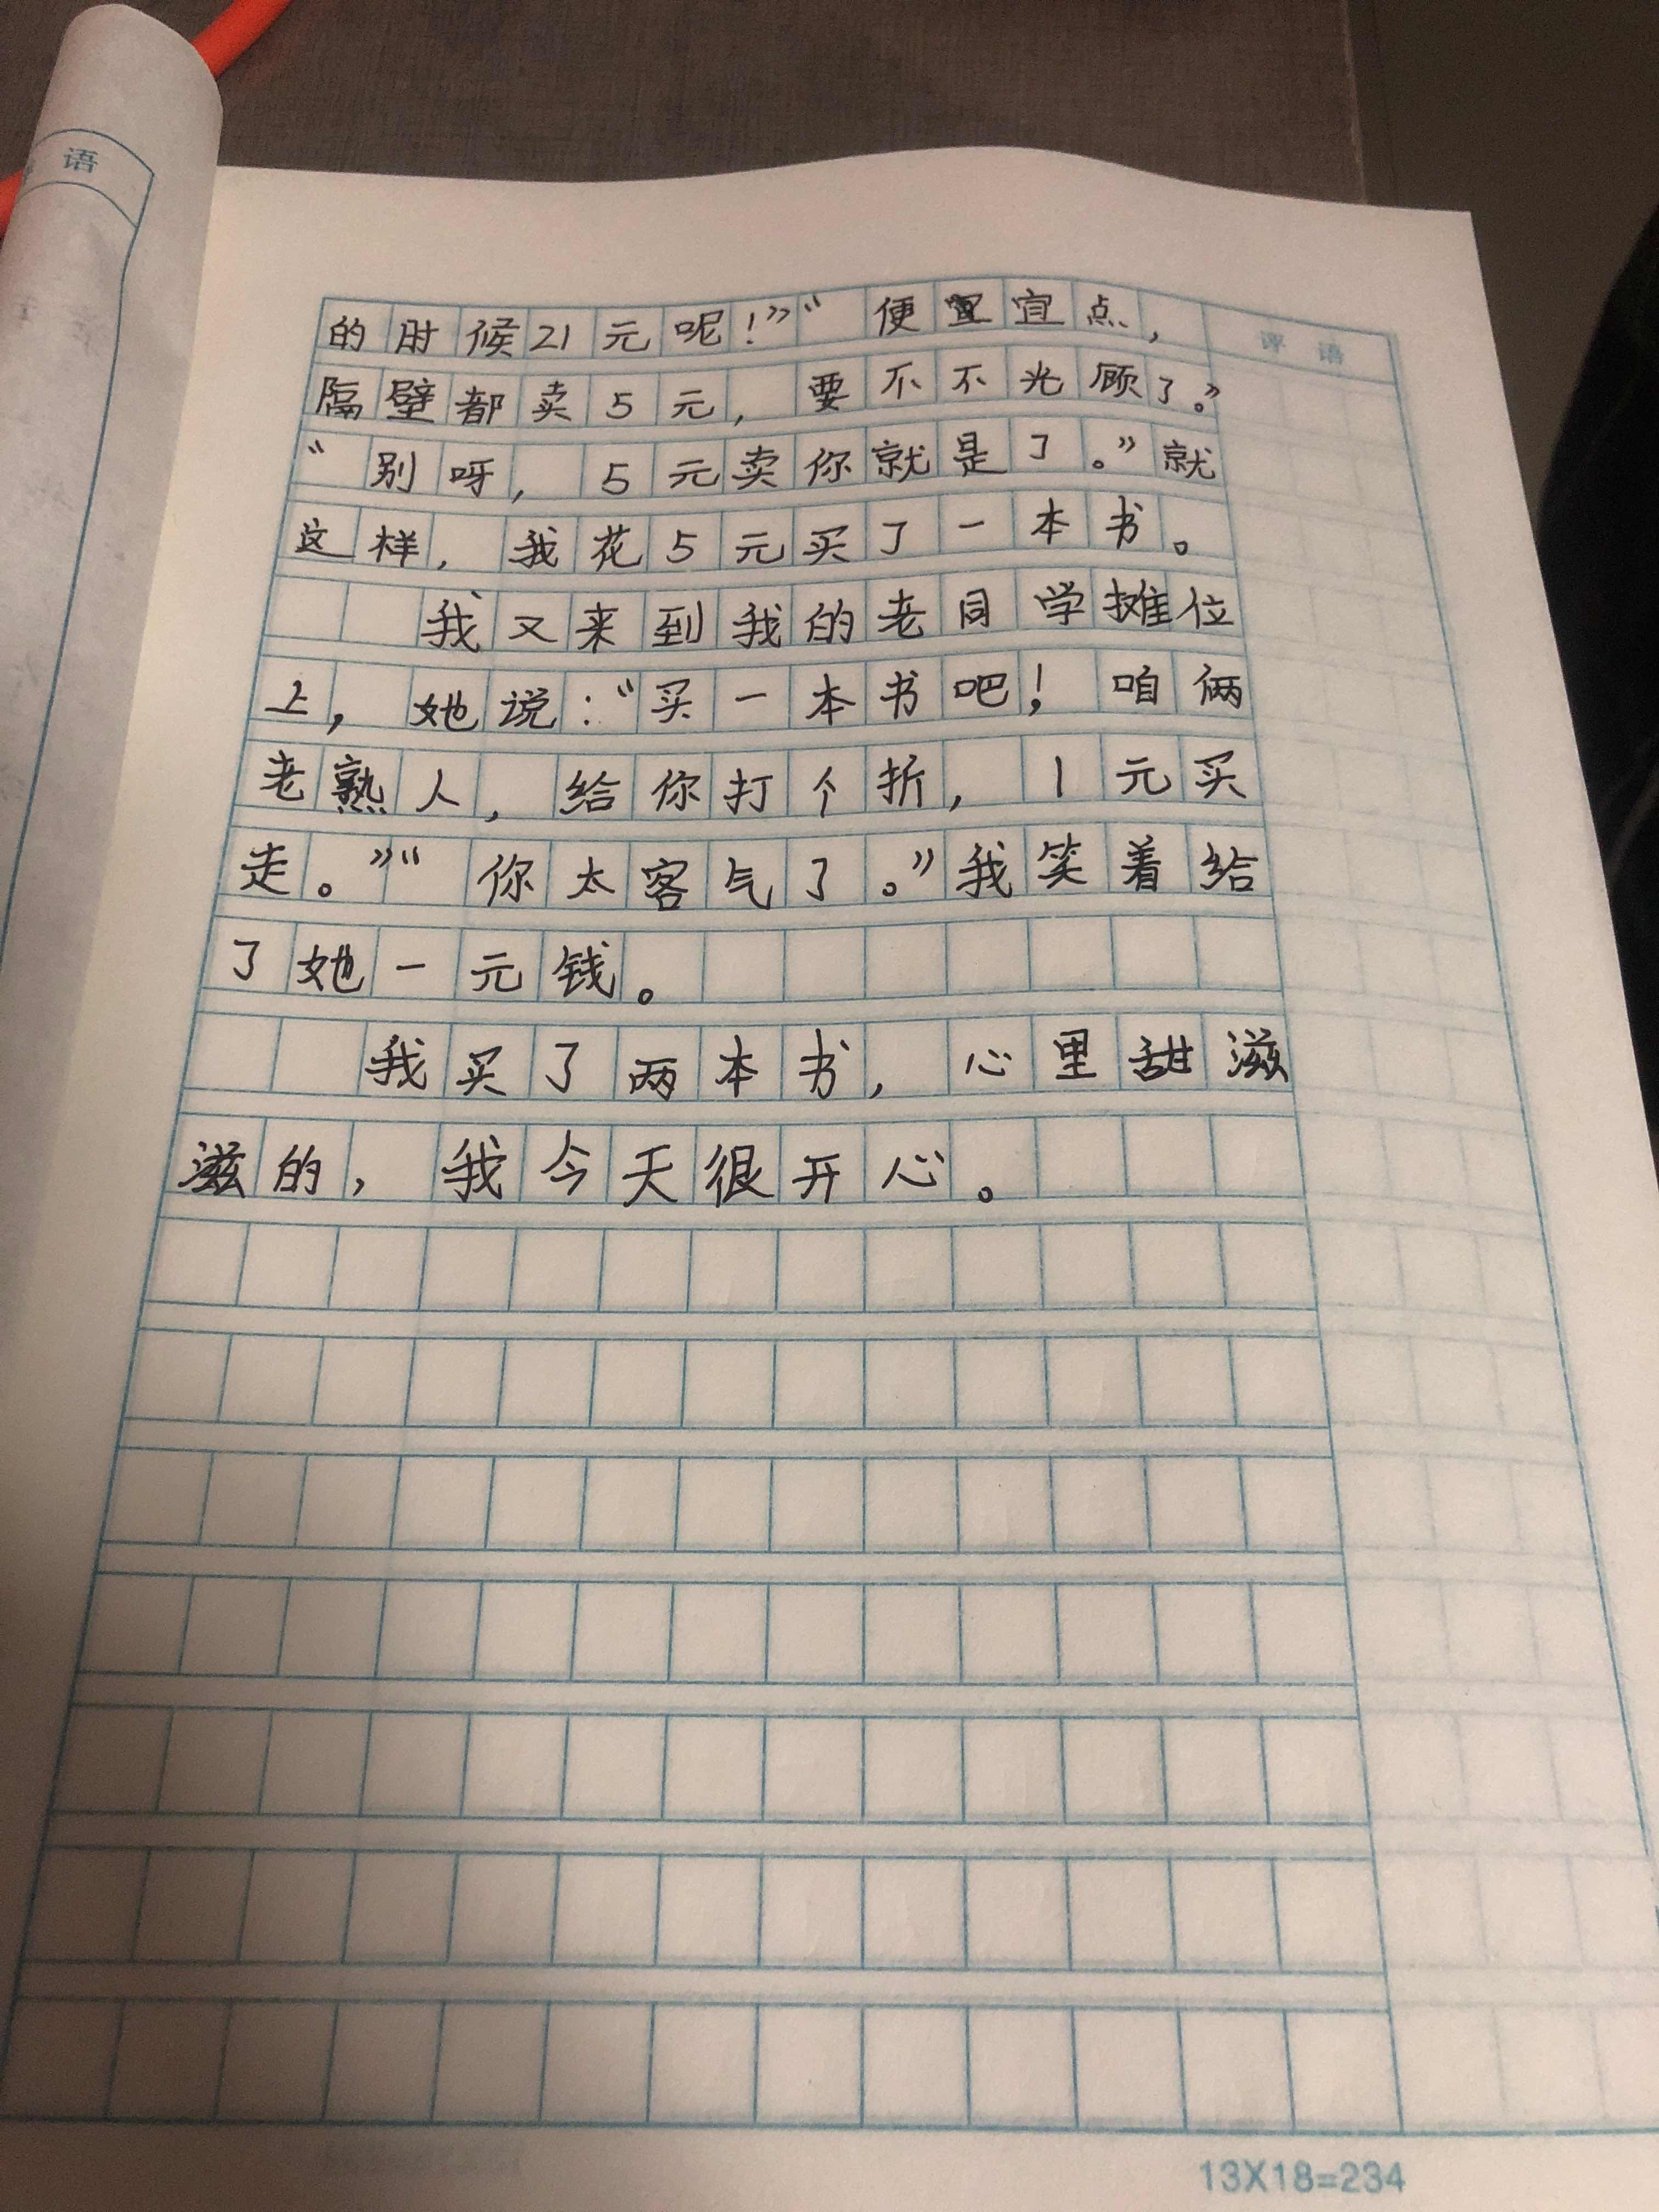 语
评 语
的时候21元呢！”“便宜宜点，
隔壁都卖5元，要不不光顾了。”
“别呀，5元卖你就是了。”就
这样，我花5元买了一本书。
我又来到我的老同学摊位
上，她说：“买一本书吧！咱俩
老熟人，给你打个折，1元买
走。”“你太客气了。”我笑着给
了她一元钱。
我买了两本书，心里甜滋
滋的，我今天很开心。
13X18=234